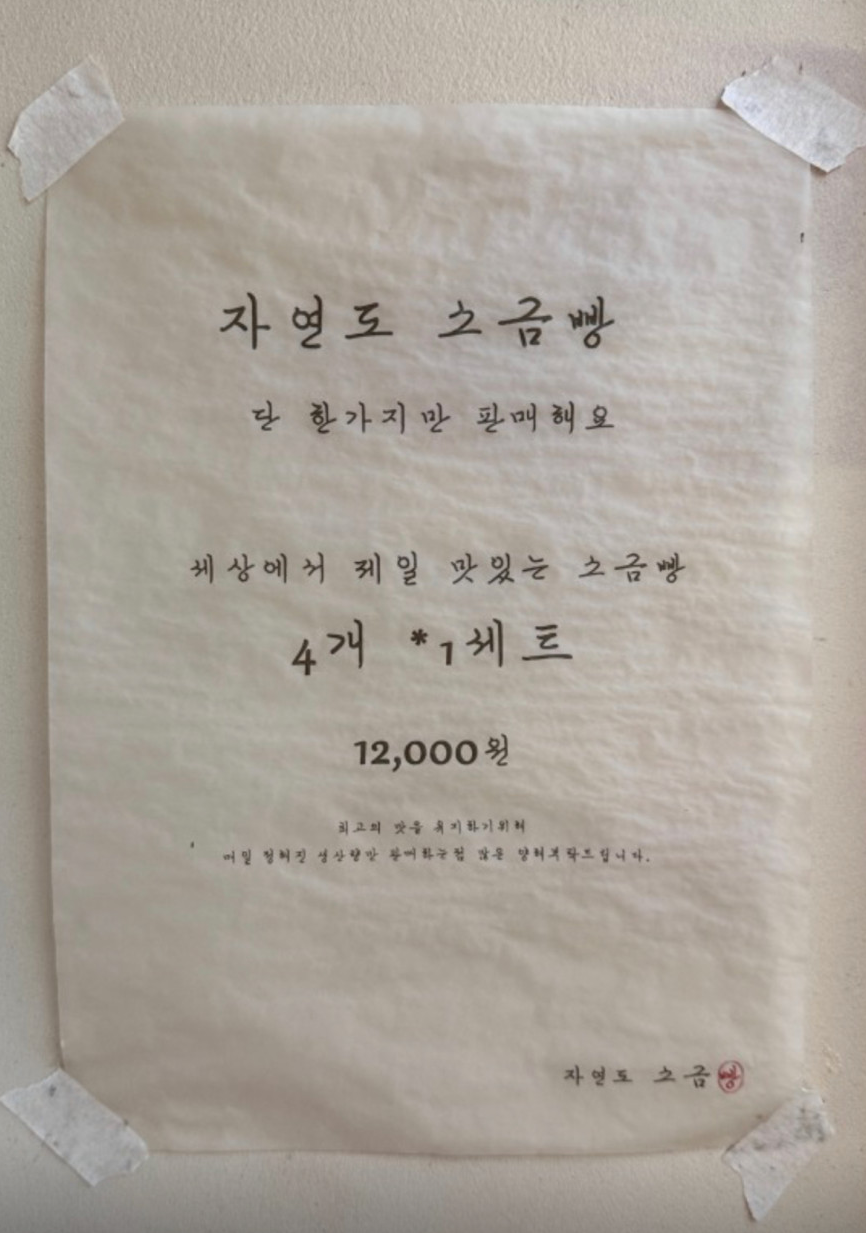 자연도 소금빵
단 한가지만 판매해요
세상에서 제일 맛있는 소금빵
4개 *1세트
12,000원
최고의 맛을 유지하기위해
매일 정해진 생산량만 판매하는점 많은 양해부탁드립니다.
자연도 소금빵